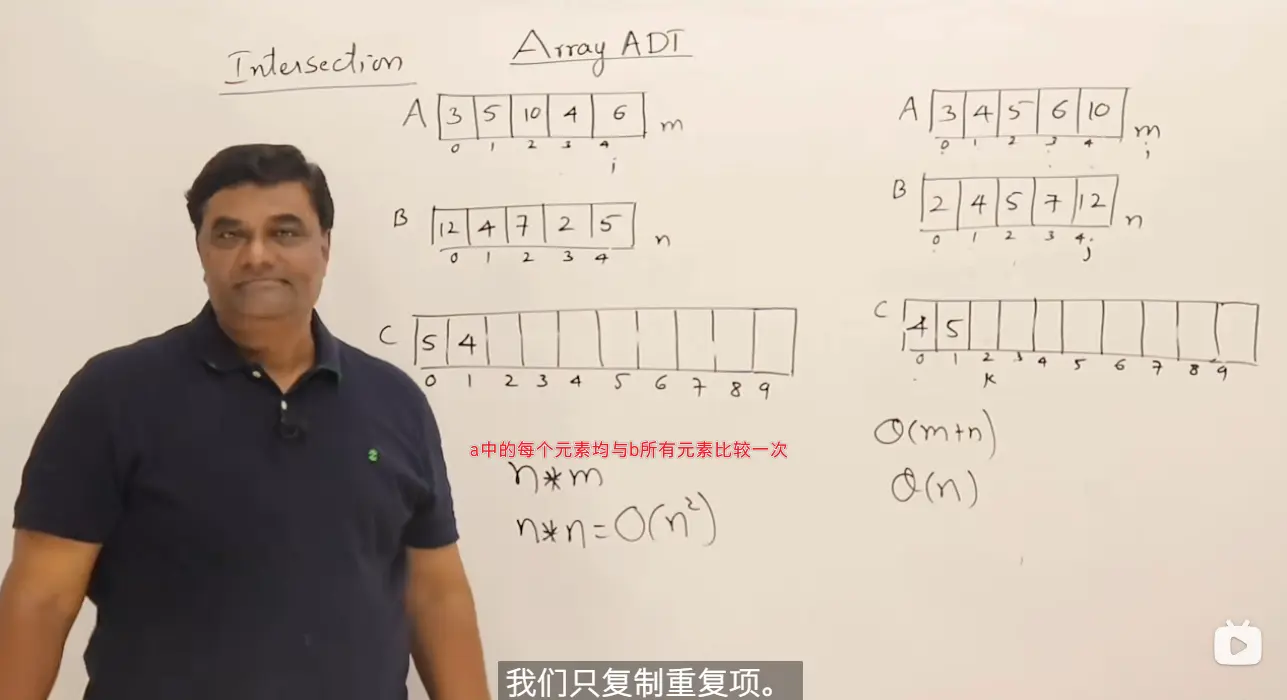 Intersection
Array ADT
A 3 5 10 4 6 m
0 1 2 3 4
i
B 12 4 7 2 5 n
0 1 2 3 4
C 5 4
0 1 2 3 4 5 6 7 8 9
a中的每个元素均与b所有元素比较一次
n*m
n*n=O(n²)
A 3 4 5 6 10 m
0 1 2 3 4 i
B 2 4 5 7 12 n
0 1 2 3 4 j
C 4 5
0 1 2 3 4 5 6 7 8 9
k
θ(m+n)
θ(n)
我们只复制重复项。